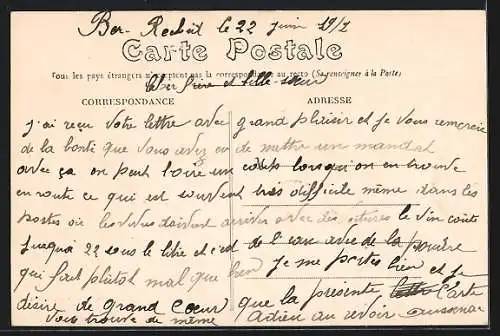 Ber- Rechit le 22 juin 1912
Carte Postale
Tous les pays étrangers n'acceptent pas la correspondance au recto (Se renseigner à la Poste)
Cher frère et belle-sœur
CORRESPONDANCE ADRESSE
j'ai reçu votre lettre avec grand plaisir et je vous remercie
de la bonté que vous avez eu de mettre un mandat
avec ça on peut boire un coup lorsqu'on en trouve
en route ce qui est souvent très difficile même dans les
postes où les vivres doivent arriver avec des le vin coûte
jusqu'à 22 sous le litre et c'est de l'eau avec de la poudre
qui fait plutôt mal que bien je me portes bien et je
désire de grand cœur que la présente lettre carte
vous trouve de même adieu au revoir